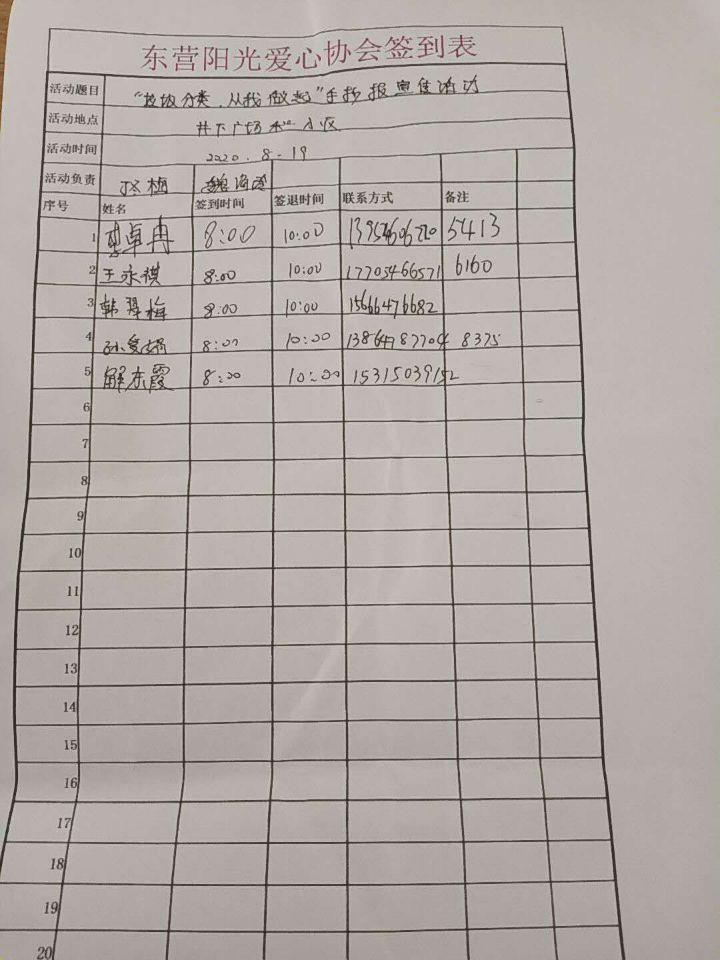 东营阳光爱心协会签到表
活动题目 "垃圾分类，从我做起"手抄报宣传活动
活动地点 井下广场和 小区
活动时间 2020.8.19
活动负责 梅
序号 姓名 签到时间 签退时间 联系方式 备注
1 李卓冉 8:00 10:00 5413
2 王永祺 8:00 10:00 17705466571 6160
3 韩翠梅 8:00 10:00 15666476682
4 孙 8:00 10:00 13864787704 8375
5 解东霞 8:00 10:00 15315039152
6
7
8
9
10
11
12
13
14
15
16
17
18
19
20